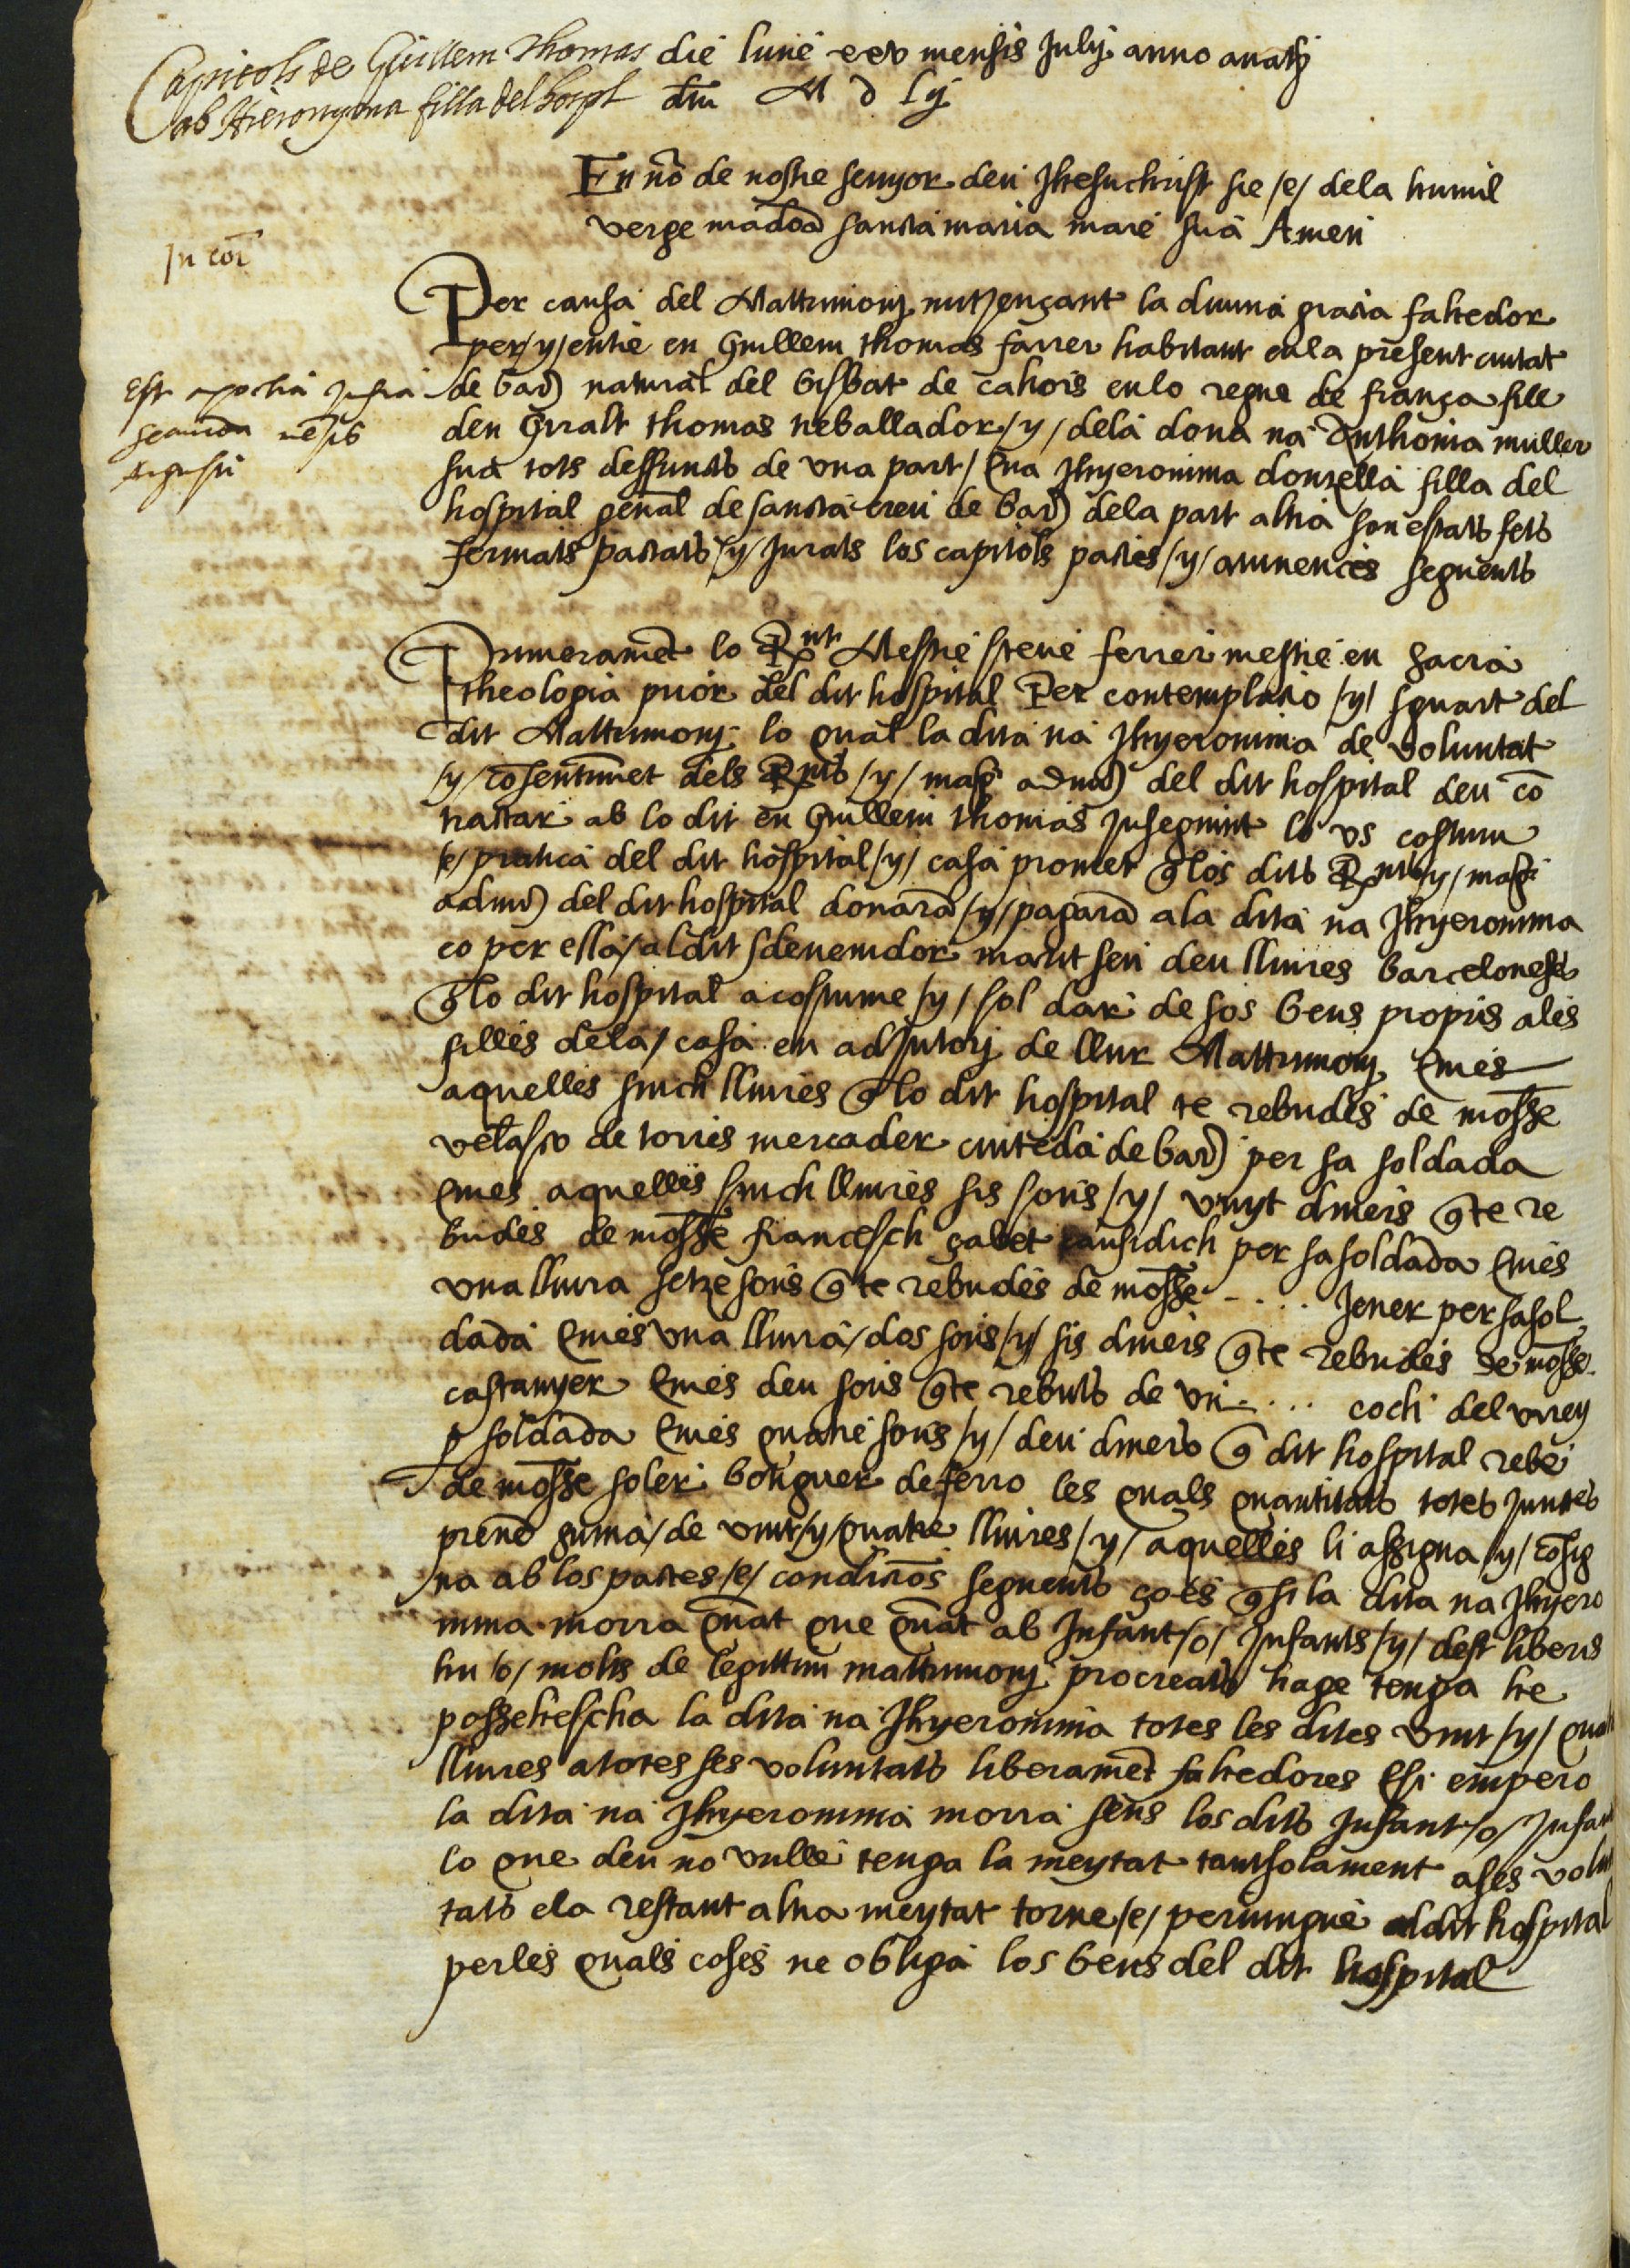 Capitols de Guillem Thomas
ab Hieronyma filla del hospl
die lune xxv mensis Julij anno a natiē
dni M d lij
En nō de nostre senyor deu Jhesuchrist sie /e/ dela humil
verge madoā sancta maria mare sua Amen
In cōi
Per causa del Mattrimonj mitzençant la diuina gracia fahedor
per /y/ entre en Guillem thomas farrer habitant en la present ciutat
de barª natural del bisbat de cahors en lo regne de frança fill
den Giralt thomas treballador /y/ dela dona na Anthonia muller
sua tots deffuncts de vna part / E na Jhyeronima donzella filla del
hospital genāl de sancta creu de barª dela part altra son estats fets
fermats pactats /y/ jurats los capitols pactes /y/ auinences seguents
Est apocha infra
secunda
augusti
Primeramēt lo Rnt Mestre steue ferrer mestre en sacra
theologia prior del dit hospital Per contemplatio /y/ sguart del
dit Mattrimonj lo qual la dita na Jhyeronima de voluntat
/y/ cōsentimēt dels Rnts /y/ magᶜˢ admᵒʳˢ del dit hospital deu cō
tractar ab lo dit en Guillem thomas Inseguint lo vs costum
/e/ pratica del dit hospital /y/ casa promet q̄ los dits Rnts /y/ magᶜˢ
admᵒʳˢ del dit hospital donarā /y/ pagarā ala dita na Jhyeronima
co per ella / al dit sdeuenidor marit seu deu lliures barceloneses
q̄ lo dit hospital acostume /y/ sol dar de sos bens propris ales
filles dela / casa en adjutorj de llur Mattrimonj E mes
aquelles sinch lliures q̄ lo dit hospital te rebudes de mosse
velasco de torres mercader ciutedā de barª per sa soldada
E mes aquelles sinch lliures sis sous /y/ vuyt diners q̄ te re
budes de mosse francesch çabet causidich per sa soldada E mes
vna lliura setze sous q̄ te rebudes de mosse - . . . Jener per sa sol
dada E mes vna lliura / dos sous /y/ sis diners q̄ te rebudes de mosse
castanyer E mes deu sous q̄ te rebuts de vn - . . . coch del virrey
p soldada E mes quatre sous /y/ deu diners q̄ dit hospital rebe
de mosse soler botiguer de ferro les quals quantitats totes juntes
prenē suma / de vint /y/ quatre lliures /y/ aquelles li assigna /y/ cōsig
na ab los pactes /e/ condicōs seguents ço es q̄ si la dita na Jhyero
nima morra qn̄at que qn̄at ab Infant /o/ Infants /y/ dest liberis
hu /o/ molts de legittim mattrimonj procreats hage tenga he
possehescha la dita na Jhyeronima totes les dites vint /y/ quat
lliures a totes ses voluntats liberamēt fahedores E si empero
la dita na Jhyeronima morra sens los dits Infant /o/ Infants
lo que deu no vulle tenga la meytat tantsolament a ses volun
tats e la restant altra meytat torne /e/ peruingue al dit hospital
per les quals coses ne obliga los bens del dit hospital